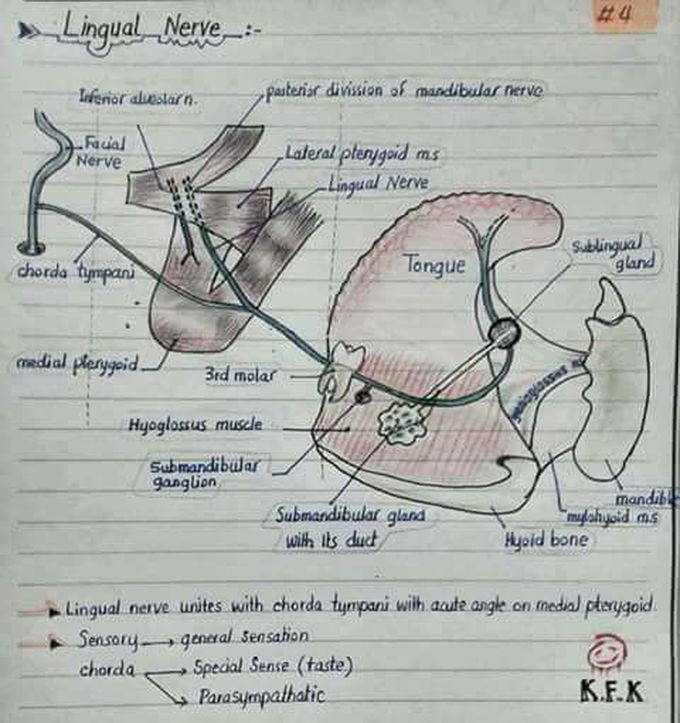 #4
Lingual Nerve :-
Inferior alveolar n.
posterior divission of mandibular nerve
Facial
Nerve
Lateral pterygoid m.s
Lingual Nerve
Sublingual
gland
Tongue
chorda tympani
medial pterygoid
3rd molar
Hyoglossus muscle
Submandibular
ganglion
Submandibular gland
with its duct
mandible
mylohyoid m.s
Hyoid bone
Lingual nerve unites with chorda tympani with acute angle on medial pterygoid.
Sensory → general sensation
chorda → Special Sense (taste)
→ Parasympathatic
K.F.K